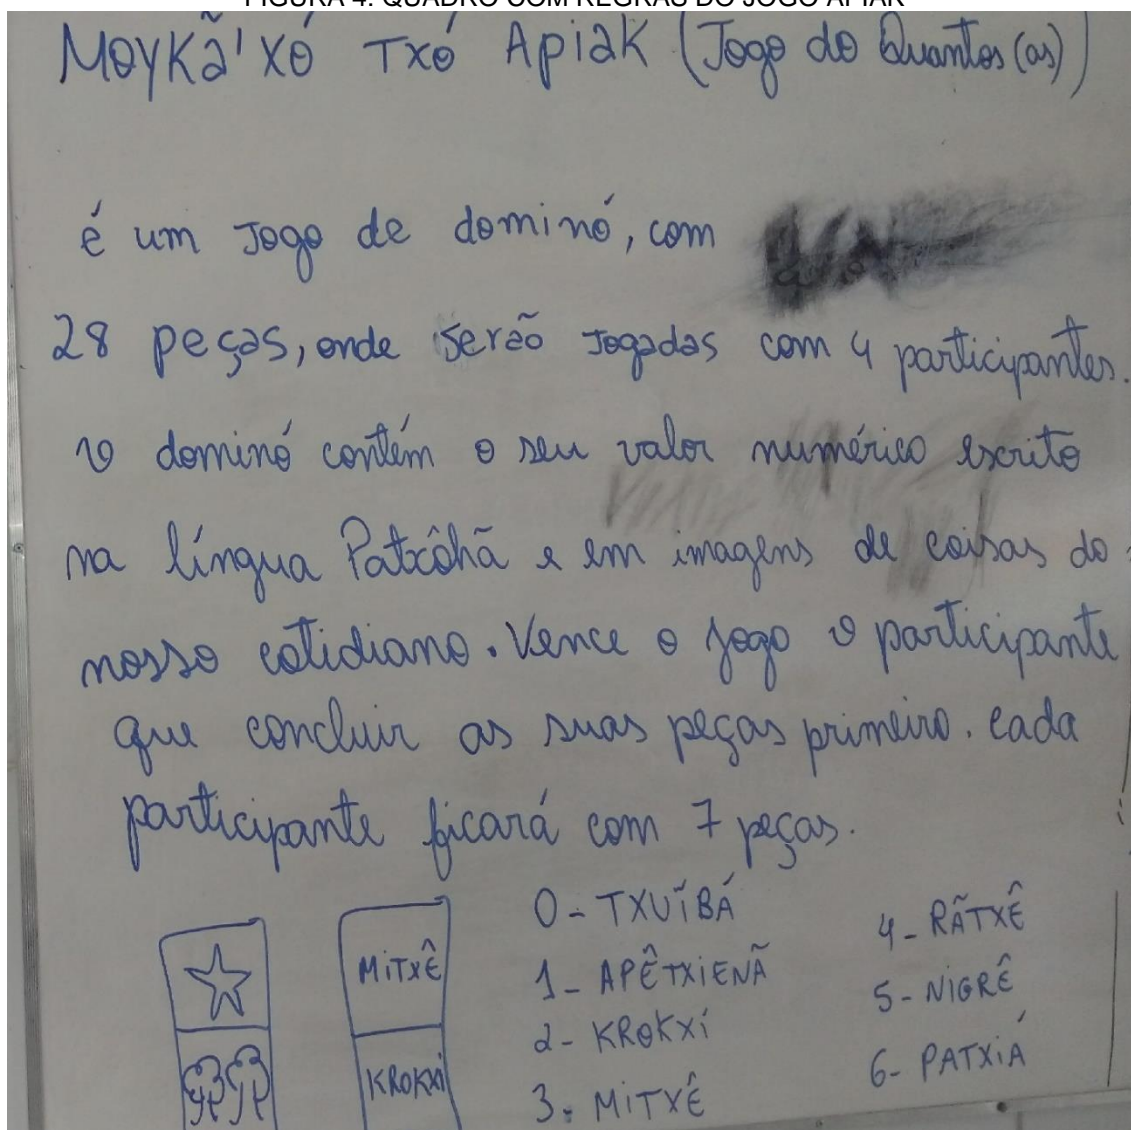 FIGURA 4: QUADRO COM REGRAS DO JOGO APIAK
Moykã'xó Txó Apiak (Jogo do Quantos (as))
é um Jogo de dominó, com
28 peças, onde serão Jogadas com 4 participantes.
o dominó contém o seu valor numérico escrito
na língua Patxôhã e em imagens de coisas do
nosso cotidiano. Vence o jogo o participante
que concluir as suas peças primeiro. cada
participante ficará com 7 peças.
MiTXÊ
KROKXí
0- TXUĨBÁ
1- APÊTXiENÃ
2- KROKXí
3. MiTXÊ
4- RÃTXÊ
5- NiGRÊ
6- PATXiÁ